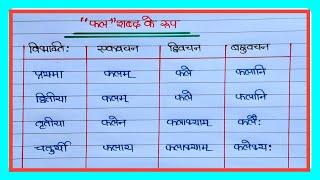 "फल" शब्द के रूप
विभक्ति: एकवचन द्विवचन बहुवचन
प्रथमा फलम् फले फलानि
द्वितीया फलम् फले फलानि
तृतीया फलेन फलाभ्याम् फलैः
चतुर्थी फलाय फलाभ्याम् फलेभ्यः